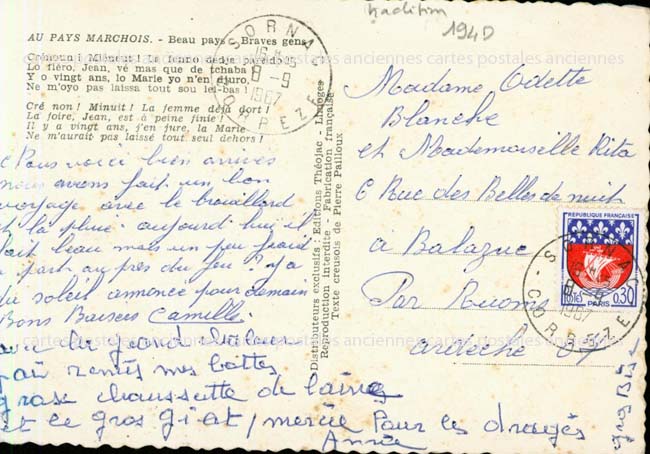 tradition
194D
AU PAYS MARCHOIS. - Beau pays - Braves gens
Crénoun! Miéneut! La fenno dedja
Lo fiéro, Jean, vé mas que de tchaba!
Y o vingt ans, lo Marie yo n'en djuro,
Ne m'oyo pas laissa tout sou lei-bas!
Cré non! Minuit! La femme déjà dort!
La foire, Jean, est à peine finie!
Il y a vingt ans, j'en jure, la Marie
Ne m'aurait pas laissé tout seul dehors!
SORNAC
8-9
1967
CORREZE
cartes postales anciennes cartes postales anciennes
Distributeurs exclusifs: Editions Théojac - Limoges
Reproduction interdite - Fabrication française
Texte creusois de Pierre Pailloux
Nous voici bien arrivés
nous avons fait un bon
voyage avec le brouillard
et la pluie. aujourd'hui il
fait beau mais un peu froid
a part au près du feu. y a
du soleil annoncé pour demain
Bons Baisers Camille
avec les grand
j'ai remis mes bottes
grose chaussette de laine
et le gros gilet, mercie Pour les dragés
Annie
Madame Odette
Blanche
et Mademoiselle Rita
6 Rue des Belles de nuit
a Balazuc
Par Ruoms
Ardèche 07
gros Bises
REPUBLIQUE FRANÇAISE
POSTES
0,30
PARIS
SORNAC
8-9
1967
CORREZE